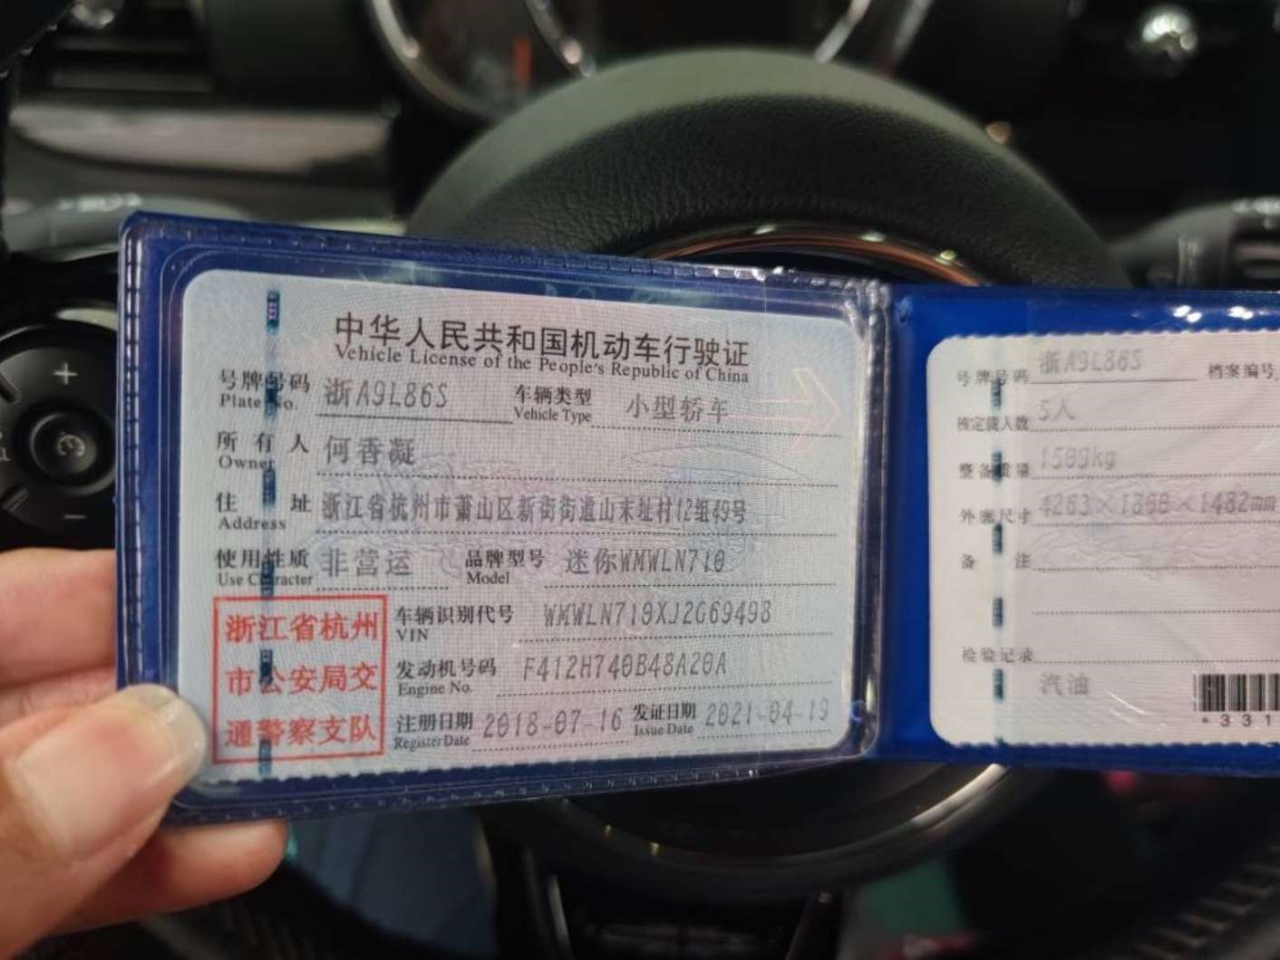 中华人民共和国机动车行驶证
Vehicle License of the People's Republic of China
号牌号码 浙A9L86S 车辆类型 小型轿车
Plate No. Vehicle Type
所有人 何香凝
Owner
住址 浙江省杭州市萧山区新街街道山末址村12组49号
Address
使用性质 非营运 品牌型号 迷你WMWLN710
Use Character Model
浙江省杭州
市公安局交
通警察支队
车辆识别代号 WMWLN710XJ2G69498
VIN
发动机号码 F412H740B48A20A
Engine No.
注册日期 2018-07-16 发证日期 2021-04-19
Register Date Issue Date
号牌号码 浙A9L86S 档案编号
核定载人数 5人
整备质量 1509kg
外廓尺寸 4263×1800×1482mm
备注
检验记录
汽油
*331